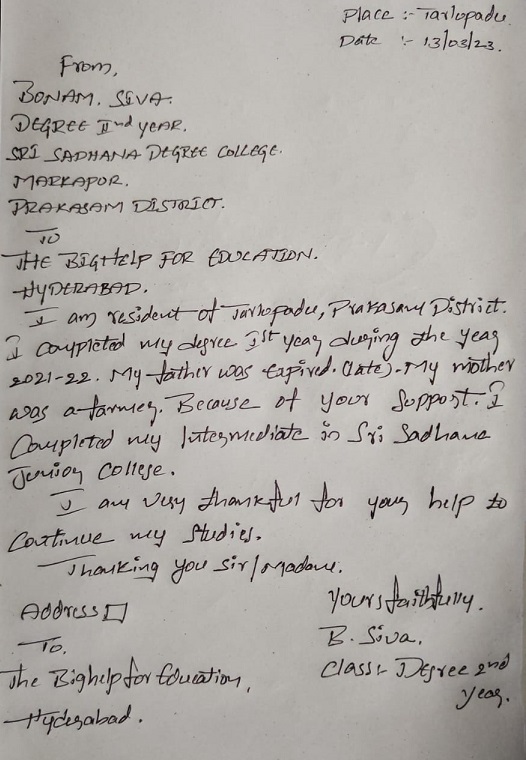 Place :- Tarlopadu.
Date :- 13/03/23.
From,
BONAM. SIVA.
DEGREE IInd YEAR.
SRI SADHANA DEGREE COLLEGE.
MARKAPUR.
PRAKASAM DISTRICT.
To
THE BIGHELP FOR EDUCATION.
HYDERABAD.
I am resident of Tarlopadu, Prakasam District.
I completed my degree Ist year during the year
2021-22. My father was Expired. (late). My mother
was a farmer. Because of your support. I
Completed my Intermediate in Sri Sadhana
Junior College.
I am very thankful for your help to
Continue my studies.
Thanking you sir/madam.
Yours faithfully.
Address
B. Siva.
To,
Class:- Degree 2nd
The Bighelp for Education,
year.
Hyderabad.